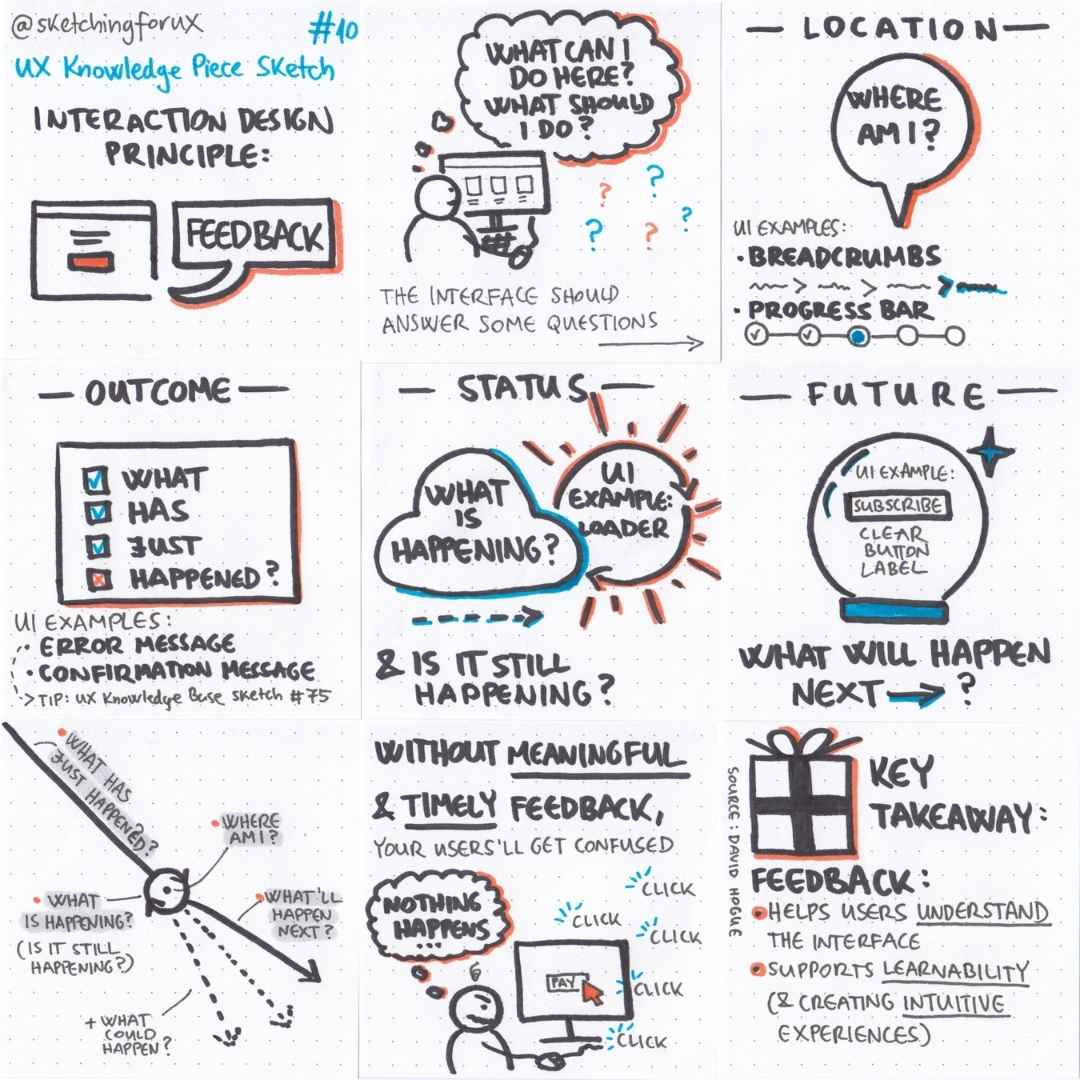 @sketchingforux
#10
UX Knowledge Piece Sketch
INTERACTION DESIGN
PRINCIPLE:
FEEDBACK
WHAT CAN I
DO HERE?
WHAT SHOULD
I DO?
? ? ? ? ?
THE INTERFACE SHOULD
ANSWER SOME QUESTIONS
— LOCATION —
WHERE
AM I?
UI EXAMPLES:
• BREADCRUMBS
• PROGRESS BAR
— OUTCOME —
WHAT
HAS
JUST
HAPPENED?
UI EXAMPLES:
• ERROR MESSAGE
• CONFIRMATION MESSAGE
> TIP: UX Knowledge Base Sketch #75
— STATUS —
WHAT
IS
HAPPENING?
UI
EXAMPLE:
LOADER
& IS IT STILL
HAPPENING?
— FUTURE —
UI EXAMPLE:
SUBSCRIBE
CLEAR
BUTTON
LABEL
WHAT WILL HAPPEN
NEXT → ?
• WHAT HAS
JUST HAPPENED?
• WHERE
AM I?
• WHAT
IS HAPPENING?
(IS IT STILL
HAPPENING?)
• WHAT'LL
HAPPEN
NEXT?
+ WHAT
COULD
HAPPEN?
WITHOUT MEANINGFUL
& TIMELY FEEDBACK,
YOUR USERS'LL GET CONFUSED
NOTHING
HAPPENS
...
CLICK
CLICK
CLICK
CLICK
CLICK
PAY
SOURCE: DAVID HOGUE
KEY
TAKEAWAY:
FEEDBACK:
• HELPS USERS UNDERSTAND
THE INTERFACE
• SUPPORTS LEARNABILITY
(& CREATING INTUITIVE
EXPERIENCES)